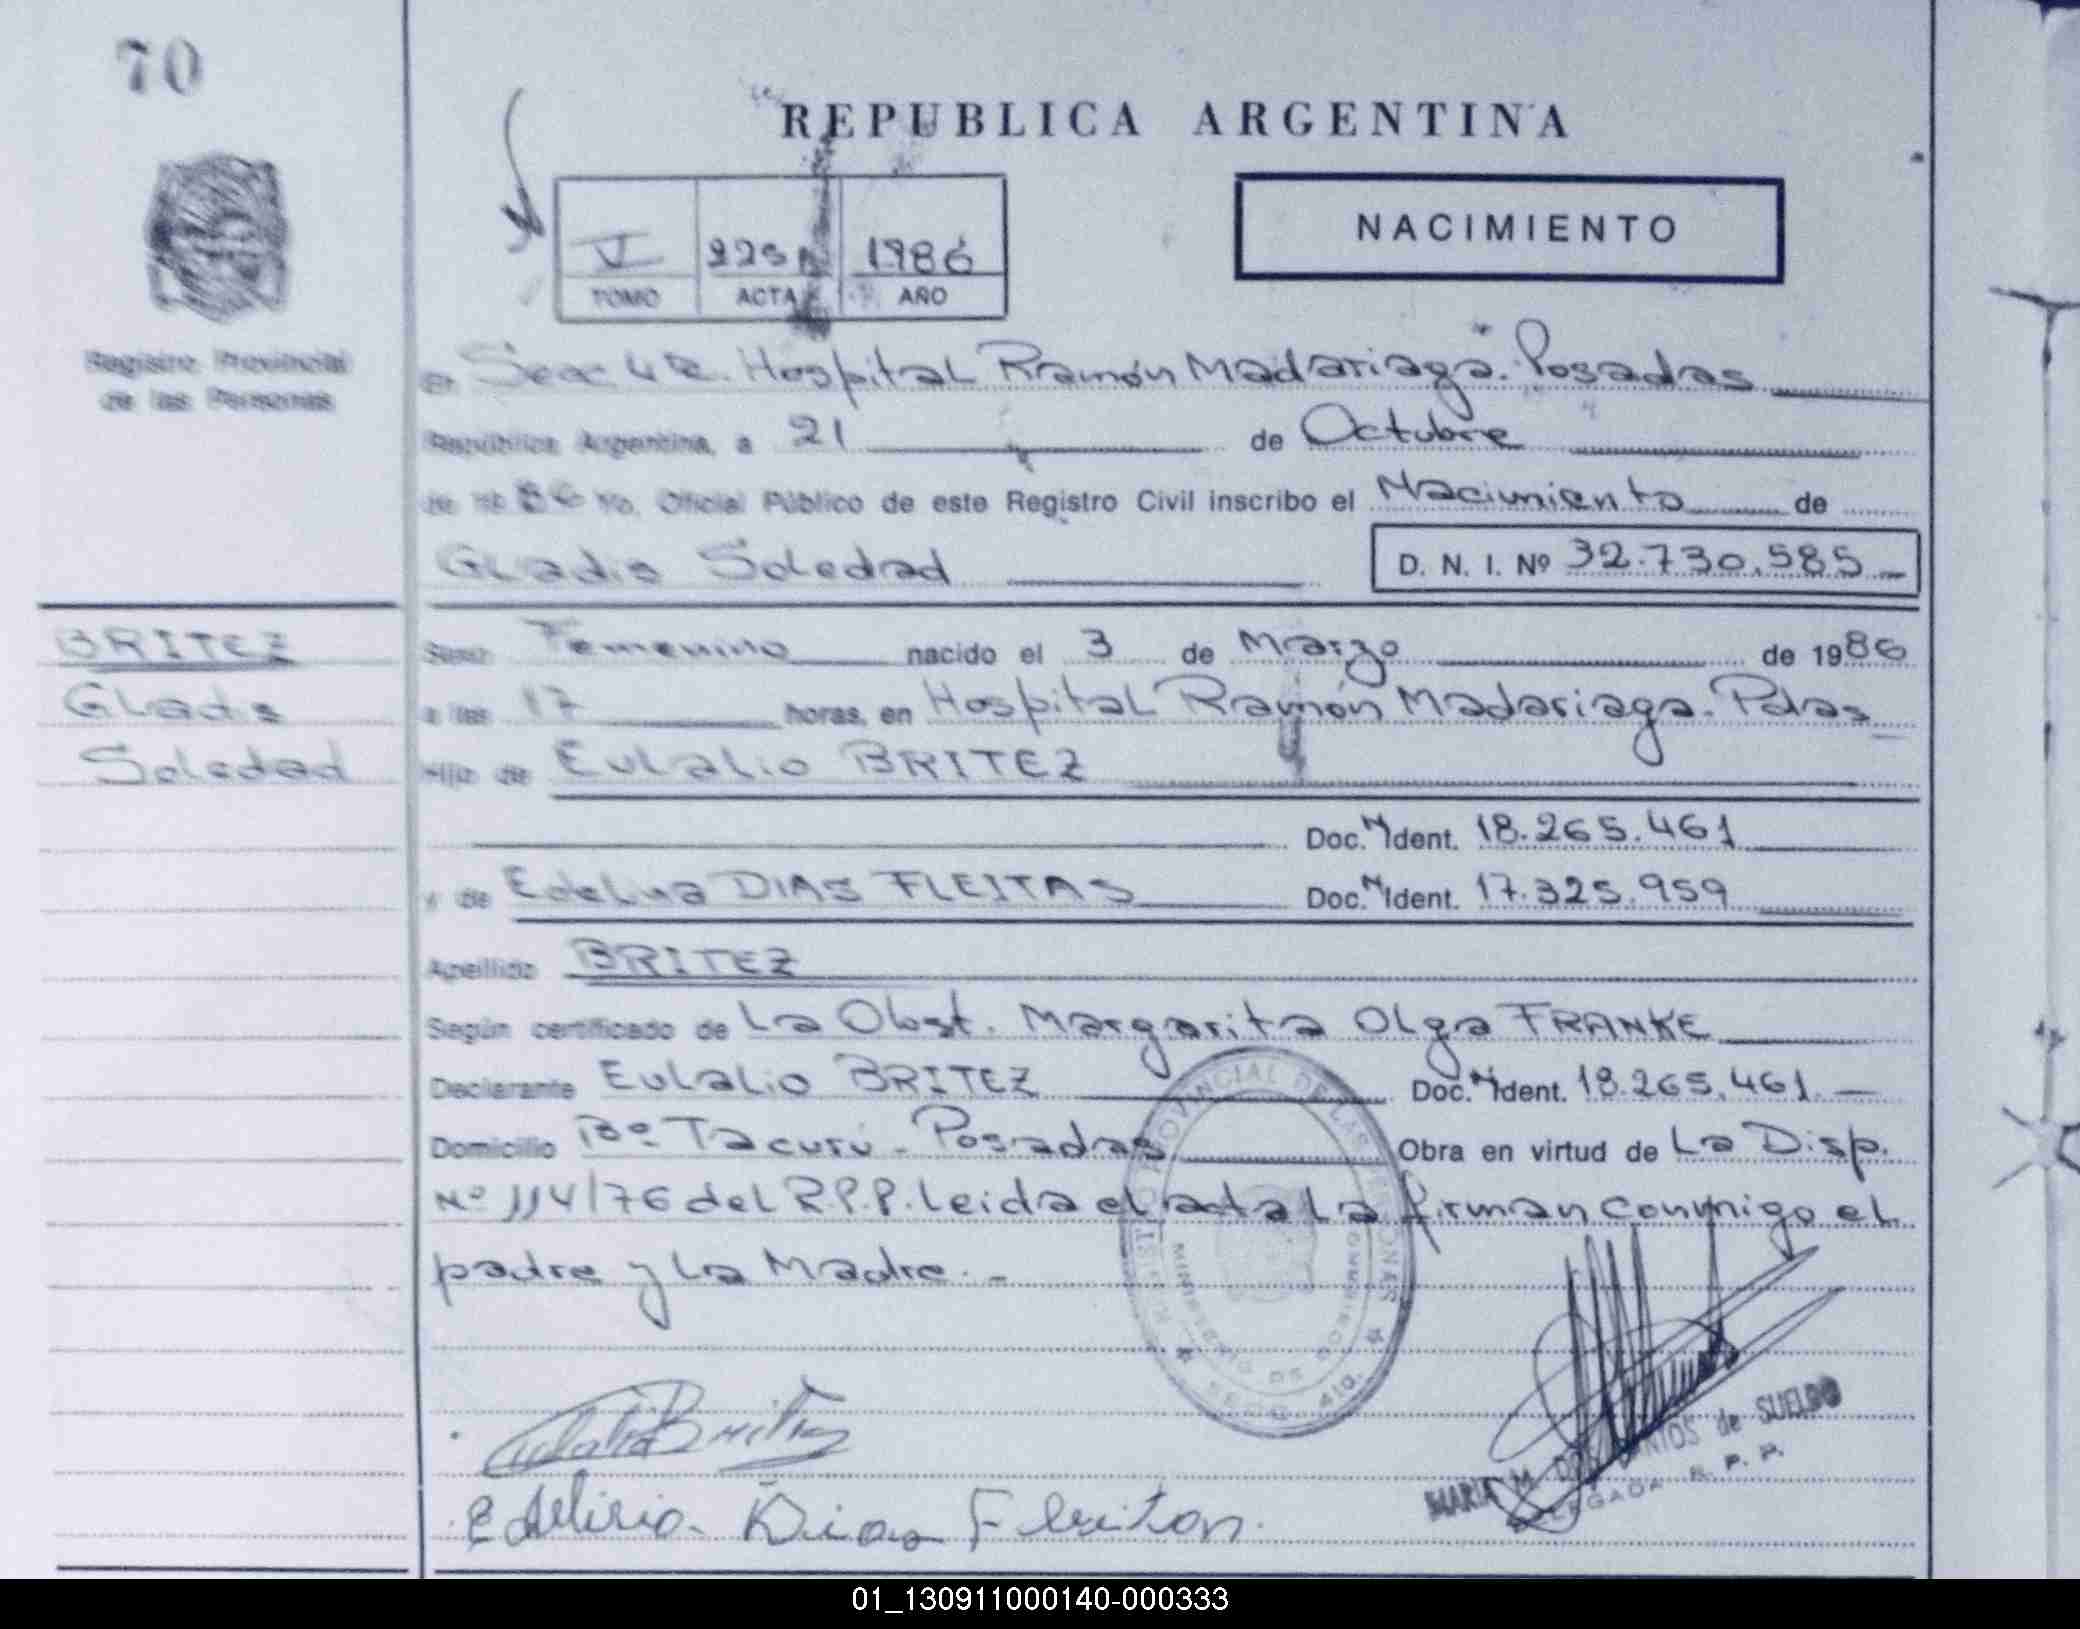 70
REPUBLICA ARGENTINA
V
1986
TOMO
ACTA
AÑO
NACIMIENTO
Registro Provincial
de las Personas
En Secc 4ta. Hospital Ramón Madariaga. Posadas
República Argentina, a 21 de Octubre
de 1986 Yo, Oficial Público de este Registro Civil inscribo el Nacimiento de
Gladis Soledad
D. N. I. Nº 32.730.585
BRITEZ
Gladis
Soledad
Sexo Femenino nacido el 3 de Marzo de 1986
a las 17 horas, en Hospital Ramón Madariaga. Pdas
Hijo de Eulalio BRITEZ
Doc. N Ident. 18.265.461
y de Edelira DIAS FLEITAS Doc. N Ident. 17.325.959
Apellido BRITEZ
Según certificado de La Obst. Margarita Olga FRANKE
Declarante Eulalio BRITEZ Doc. N Ident. 18.265.461
Domicilio Bº Tacurú - Posadas Obra en virtud de La Disp.
Nº 114/76 del R.P.P. Leida el acta La firman conmigo el
padre y La Madre. -
REGISTRO PROVINCIAL DE LAS PERSONAS
MINISTERIO DE GOBIERNO
Eulalio Britez
Edelira Dias Fleitas
MARIA M. DOS SANTOS de SUELDO
DELEGADA R. P. P.
01_130911000140-000333